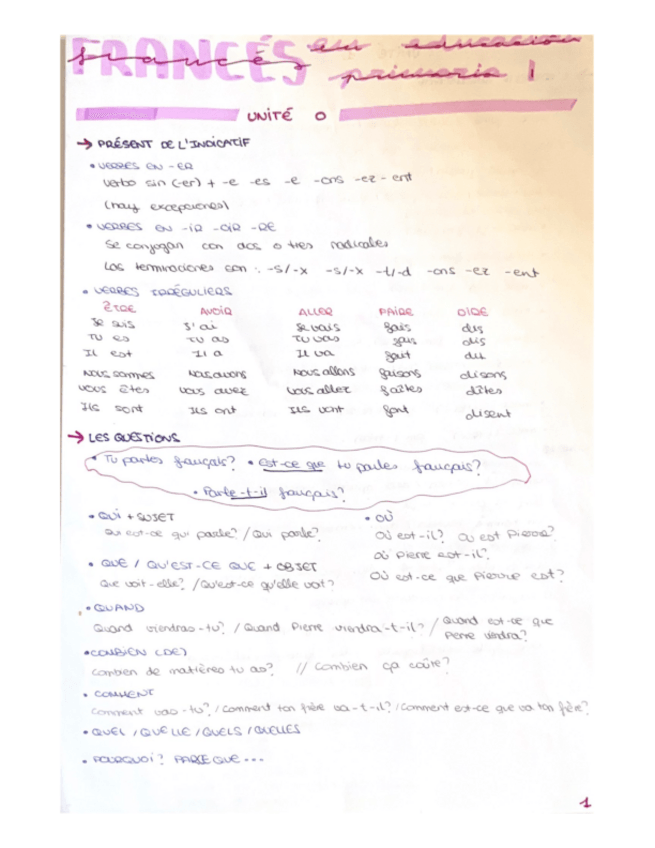 FRANCÉS
francés en educación
primaria 1
UNITÉ 0
→ PRÉSENT DE L'INDICATIF
• VERBES EN -ER
Verbo sin (-er) + -e -es -e -ons -ez -ent
(hay excepciones)
• VERBES EN -IR -OIR -RE
Se conjugan con dos o tres radicales
Las terminaciones son : -s/-x -s/-x -t/-d -ons -ez -ent
• VERBES IRRÉGULIERS
ÊTRE AVOIR ALLER FAIRE DIRE
Je suis J'ai Je vais fais dis
Tu es Tu as Tu vas fais dis
Il est Il a Il va fait dit
Nous sommes Nous avons Nous allons faisons disons
Vous êtes Vous avez Vous allez faîtes dîtes
Ils sont Ils ont Ils vont font disent
→ LES QUESTIONS
• Tu parles français? • Est-ce que tu parles français?
• Parle-t-il français?
• QUI + SUJET
Qui est-ce qui parle? / Qui parle?
• QUE / QU'EST-CE QUE + OBJET
Que voit-elle? / Qu'est-ce qu'elle voit?
• OÙ
Où est-il? Où est Pierre?
Où Pierre est-il?
Où est-ce que Pierre est?
• QUAND
Quand viendras-tu? / Quand Pierre viendra-t-il? / Quand est-ce que
Pierre viendra?
• COMBIEN (DE)
Combien de matières tu as? // Combien ça coûte?
• COMMENT
Comment vas-tu? / Comment ton frère va-t-il? / Comment est-ce que va ton frère?
• QUEL / QUELLE / QUELS / QUELLES
• POURQUOI? PARCE QUE...
1